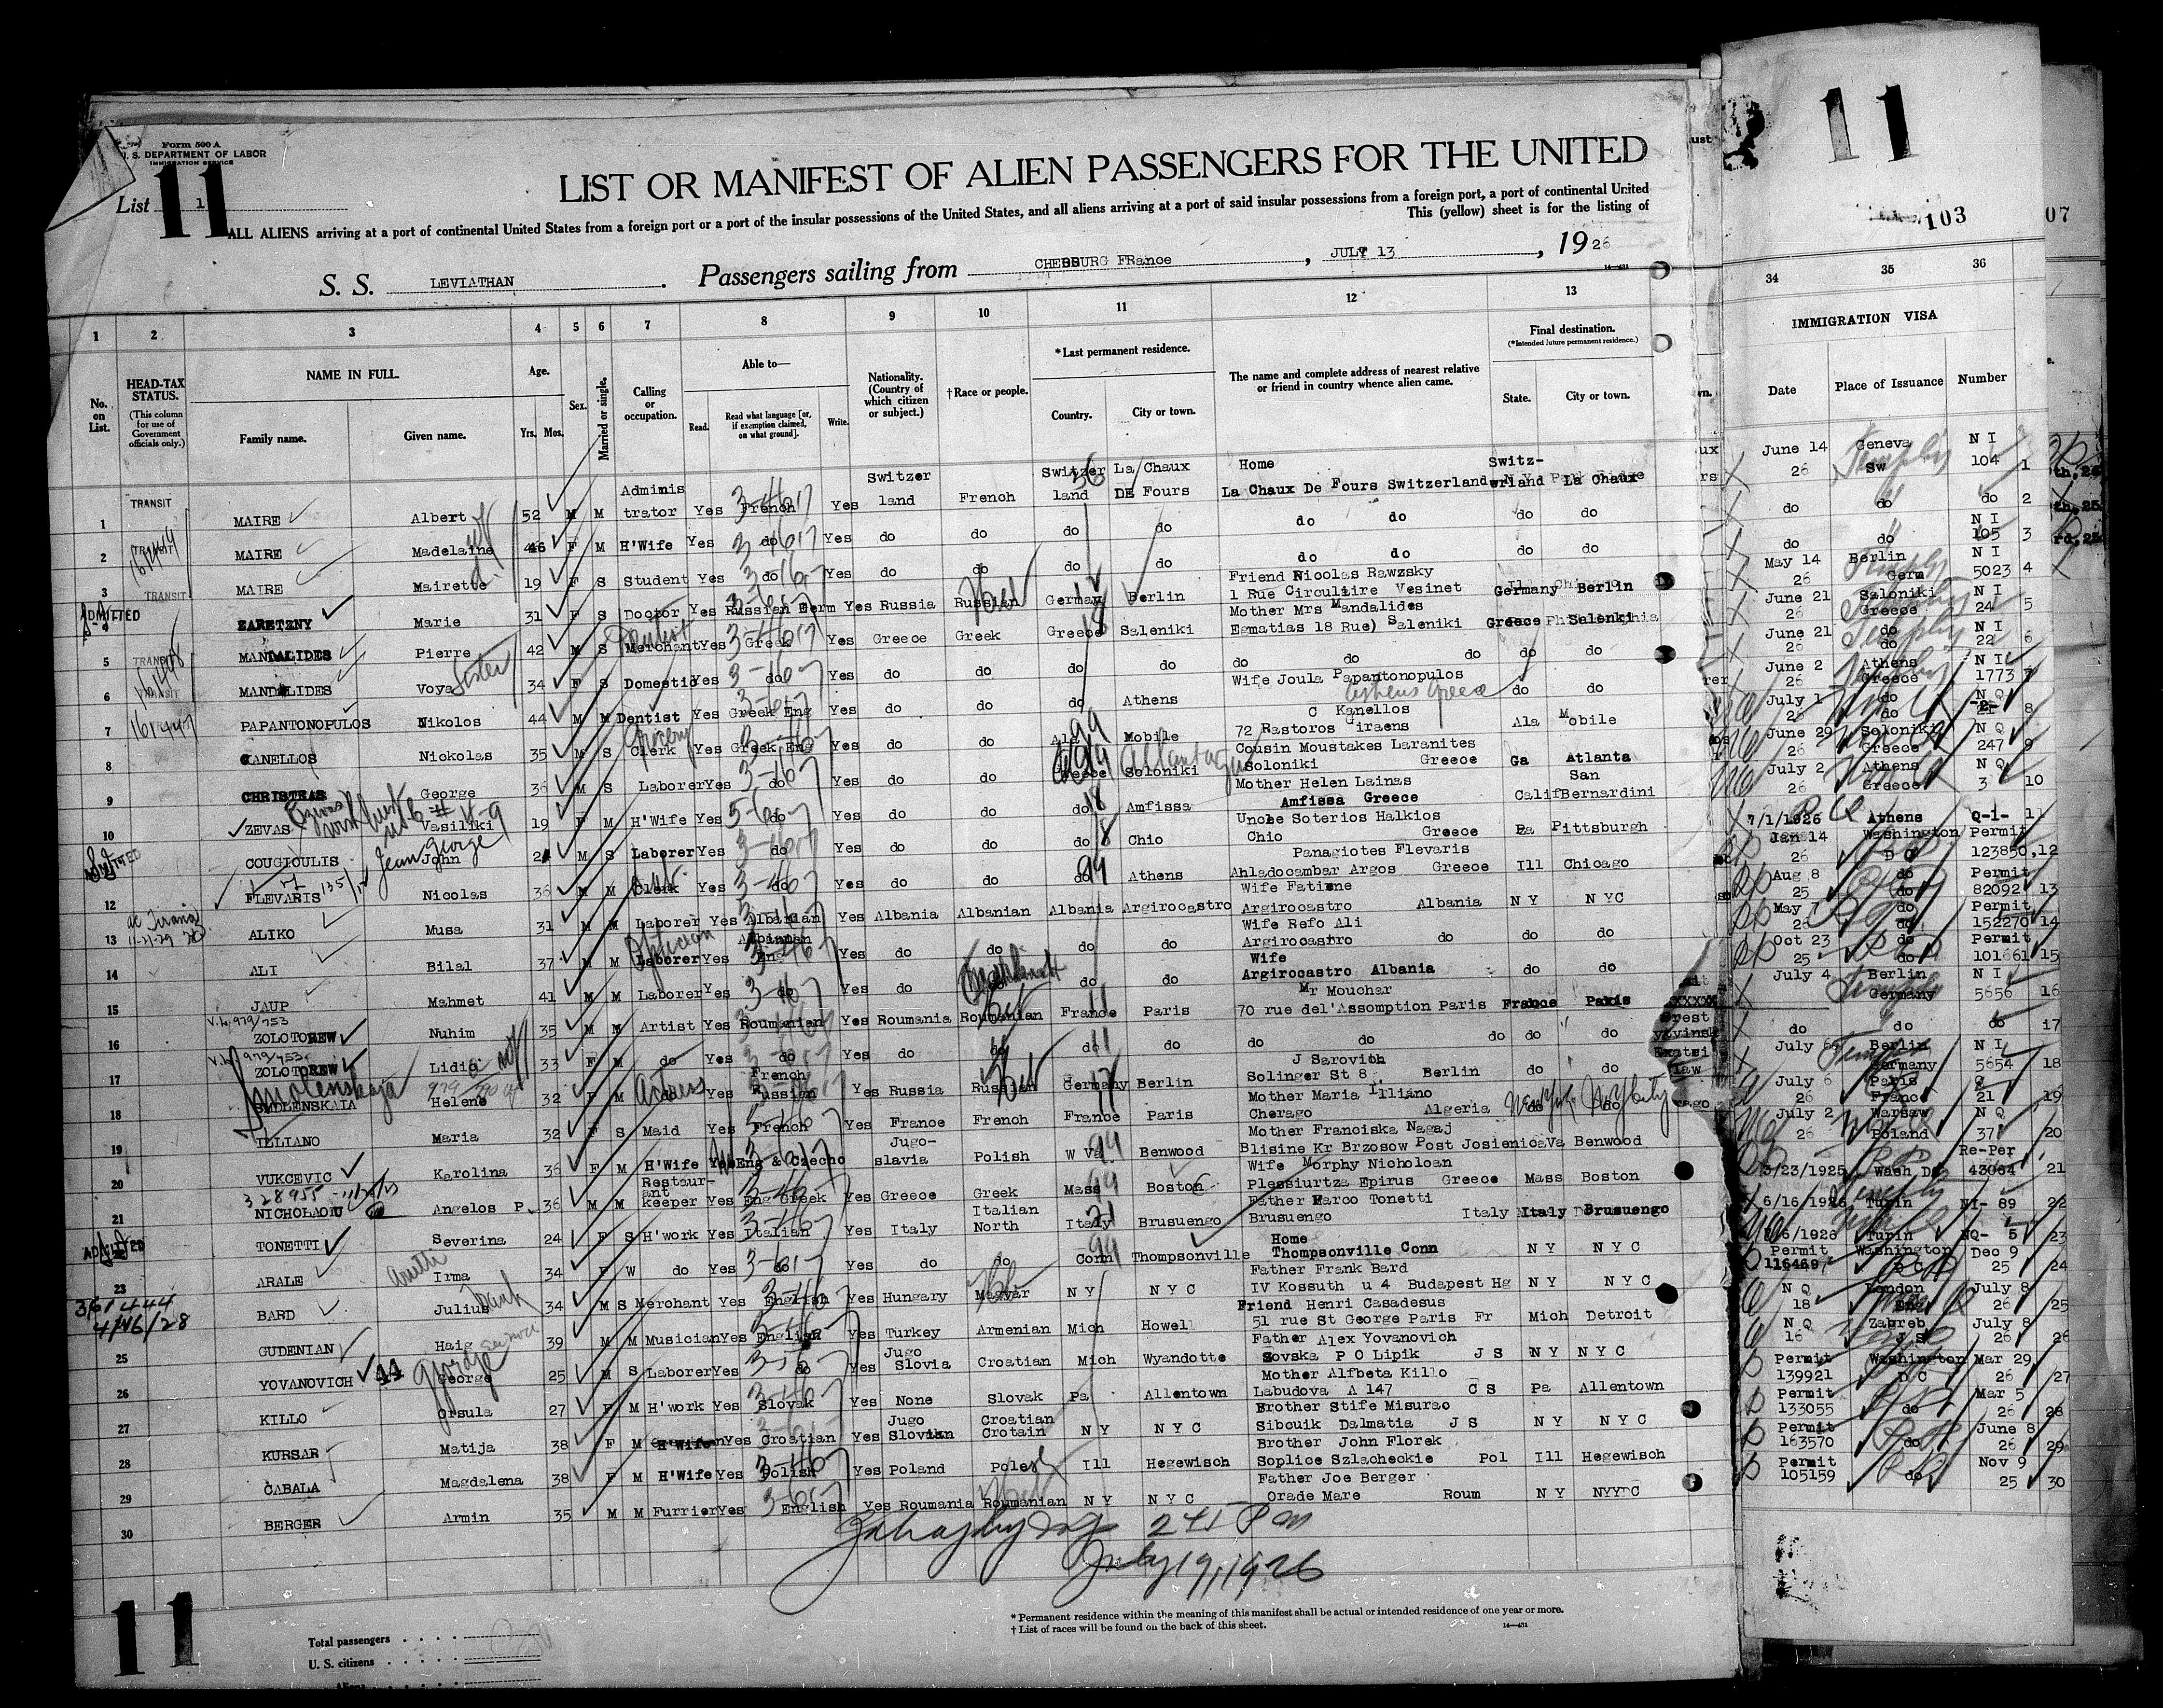 Form 500 A
U. S. DEPARTMENT OF LABOR
IMMIGRATION SERVICE
List 11
LIST OR MANIFEST OF ALIEN PASSENGERS FOR THE UNITED
ALL ALIENS arriving at a port of continental United States from a foreign port or a port of the insular possessions of the United States, and all aliens arriving at a port of said insular possessions from a foreign port, a port of continental United
This (yellow) sheet is for the listing of
S. S. LEVIATHAN. Passengers sailing from CHERBURG FRance, JULY 13, 1926
11
103
07
1 2 3 4 5 6 7 8 9 10 11 12 13 34 35 36
No. on List.
HEAD-TAX STATUS. (This column for use of Government officials only.)
NAME IN FULL. Family name. Given name.
Age. Yrs. Mos.
Sex.
Married or single.
Calling or occupation.
Able to— Read. Read what language [or, if exemption claimed, on what ground]. Write.
Nationality. (Country of which citizen or subject.)
†Race or people.
*Last permanent residence. Country. City or town.
The name and complete address of nearest relative or friend in country whence alien came.
Final destination. (*Intended future permanent residence.) State. City or town.
IMMIGRATION VISA Date Place of Issuance Number
1 TRANSIT MAIRE Albert 52 M M Adminis trator Yes French Yes Switzer land French Switzer land La Chaux DE Fours Home La Chaux De Fours Switzerland Switz- erland La Chaux June 14 26 Geneva Sw N I 104 1
2 TRANSIT MAIRE Madelaine 46 F M H'Wife Yes do Yes do do do do do do do do do do do 2
3 TRANSIT MAIRE Mairette 19 F S Student Yes do Yes do do do do do do do do do do N I 105 3
4 ADMITTED ZARETZNY Marie 31 F S Doctor Yes Russian Germ Yes Russia Russian German Berlin Friend Nicolas Rawzsky 1 Rue Circuliire Vesinet Germany Berlin May 14 26 Berlin Germ N I 5023 4
5 TRANSIT MANDALIDES Pierre 42 M S Merchant Yes Greek Yes Greece Greek Greece Saleniki Mother Mrs Mandalides Egmatias 18 Rue) Saleniki Greece Salenki June 21 26 Saloniki Greece N I 24 5
6 TRANSIT MANDALIDES Voya Sister 34 F S Domestic Yes do Yes do do do do do do do do do June 21 26 do do N I 22 6
7 161447 PAPANTONOPULOS Nikolos 44 M M Dentist Yes Greek Eng Yes do do do Athens Wife Joula Papantonopulos Athens Greece do do June 2 26 Athens Greece N I 1773 7
8 KANELLOS Nickolas 35 M S Grocery Clerk Yes Greek Eng Yes do do Ala Mobile C Kanellos 72 Rastoros Giraens Ala Mobile July 1 26 do do N Q 21 8
9 CHRISTEAS George 36 M S Laborer Yes do Yes do do Greece Soloniki Cousin Moustakes Laranites Soloniki Greece Ga Atlanta June 29 26 Soloniki Greece N Q 247 9
10 ZEVAS Vasiliki 19 F M H'Wife Yes do Yes do do do Amfissa Mother Helen Lainas Amfissa Greece Calif San Bernardini July 2 26 Athens Greece N Q 3 10
COUGIOULIS John Jean George 24 M S Laborer Yes do Yes do do do Chio Uncle Soterios Halkios Chio Greece Pa Pittsburgh 7/1/1926 Athens Q-1- 11
12 FLEVARIS Nicolas 36 M M Clerk Yes do Yes do do do Athens Panagiotes Flevaris Ahladocambar Argos Greece Ill Chicago Jan 14 26 Washington D C Permit 123850 12
13 ALIKO Musa 31 M M Laborer Yes Albanian Yes Albania Albanian Albania Argirocastro Wife Fatime Argirocastro Albania N Y NYC Aug 8 25 do Permit 82092 13
14 ALI Bilal 37 M M Laborer Yes Albanian Eng Yes do do do do Wife Refo Ali Argirocastro do do do May 7 26 do do Permit 152270 14
15 JAUP Mahmet 41 M M Laborer Yes do Yes do do do Wife Argirocastro Albania do do Oct 23 25 do do Permit 101661 15
16 ZOLOTOREW Nuhim 35 M M Artist Yes Roumanian Yes Roumania Roumanian France Paris Mr Mouchar 70 rue del'Assomption Paris France Paris July 4 Berlin Germany N I 5656 16
17 ZOLOTOREW Lidia 33 F M do Yes do Yes do do do do do do do do do do do do 17
18 SMOLENSKAIA Smolenskaja Helene 32 F M Actress Yes French Russian Yes Russia Russian Germany Berlin J Sarovith Solinger St 8 Berlin do do July 6 Berlin Germany N I 5654 18
19 ILLIANO Maria 32 F S Maid Yes French Yes France French France Paris Mother Maria Illiano Cherago Algeria New York N Y City July 6 26 Paris Franc Q 21 19
20 VUKCEVIC Karolina 36 F M H'Wife Yes Eng & Czecho Jugo- slavia Polish W Va Benwood Mother Franciska Nagaj Blisine Kr Brzosow Post Josienica Va Benwood July 2 26 Warsaw Poland N Q 37 20
21 NICHOLAOU Angelos P. 36 M M Restaur- ant keeper Yes Eng Greek Yes Greece Greek Mass Boston Wife Morphy Nicholoan Plessiurtza Epirus Greece Mass Boston 3/23/1925 Wash DC Re-Per 43064 21
ADMITTED TONETTI Severina 24 F S H'work Yes Italian Yes Italy Italian North Italy Brusuengo Father Marco Tonetti Brusuengo Italy Italy Brusuengo 6/16/1926 Turin NI- 89 22
23 ARALE Irma 34 F W do Yes do Yes do do Conn Thompsonville Home Thompsonville Conn N Y N Y C 6/1926 Turin NQ- 5 23
BARD Julius Frank 34 M S Merchant Yes English Yes Hungary Magyar N Y N Y C Father Frank Bard IV Kossuth u 4 Budapest Hg N Y N Y C Permit 116469 Washington D C Dec 9 25 24
361444
4/16/28
25 GUDENIAN Haig 39 M M Musician Yes English Yes Turkey Armenian Mich Howell Friend Henri Casadesus 51 rue St George Paris Fr Mich Detroit N Q 18 London Eng July 8 26 25
26 YOVANOVICH George 25 M S Laborer Yes do Yes Jugo Slovia Croatian Mich Wyandotte Father Alex Yovanovich Sovska P O Lipik J S N Y N Y C N Q 16 Zagreb J S July 8 26 26
27 KILLO Orsula 27 F M H'work Yes Slovak Yes None Slovak Pa Allentown Mother Alfbeta Killo Labudova A 147 C S Pa Allentown Permit 139921 Washington D C Mar 29 26 27
28 KURSAR Matija 38 F M H'Wife Yes Croatian Yes Jugo Slovian Croatian Crotain N Y N Y C Brother Stife Misurac Sibcuik Dalmatia J S N Y N Y C Permit 133055 do Mar 5 26 28
29 CABALA Magdalena 38 F M H'Wife Yes Polish Yes Poland Polesh Ill Hegewisch Brother John Florek Soplice Szlacheckie Pol Ill Hegewisch Permit 163570 do June 8 26 29
30 BERGER Armin 35 M M Furrier Yes English Yes Roumania Roumanian N Y N Y C Father Joe Berger Orade Mare Roum N Y NYC Permit 105159 do Nov 9 25 30
241 Pm
July 19, 1926
* Permanent residence within the meaning of this manifest shall be actual or intended residence of one year or more.
† List of races will be found on the back of this sheet.
11
Total passengers
U. S. citizens
Aliens